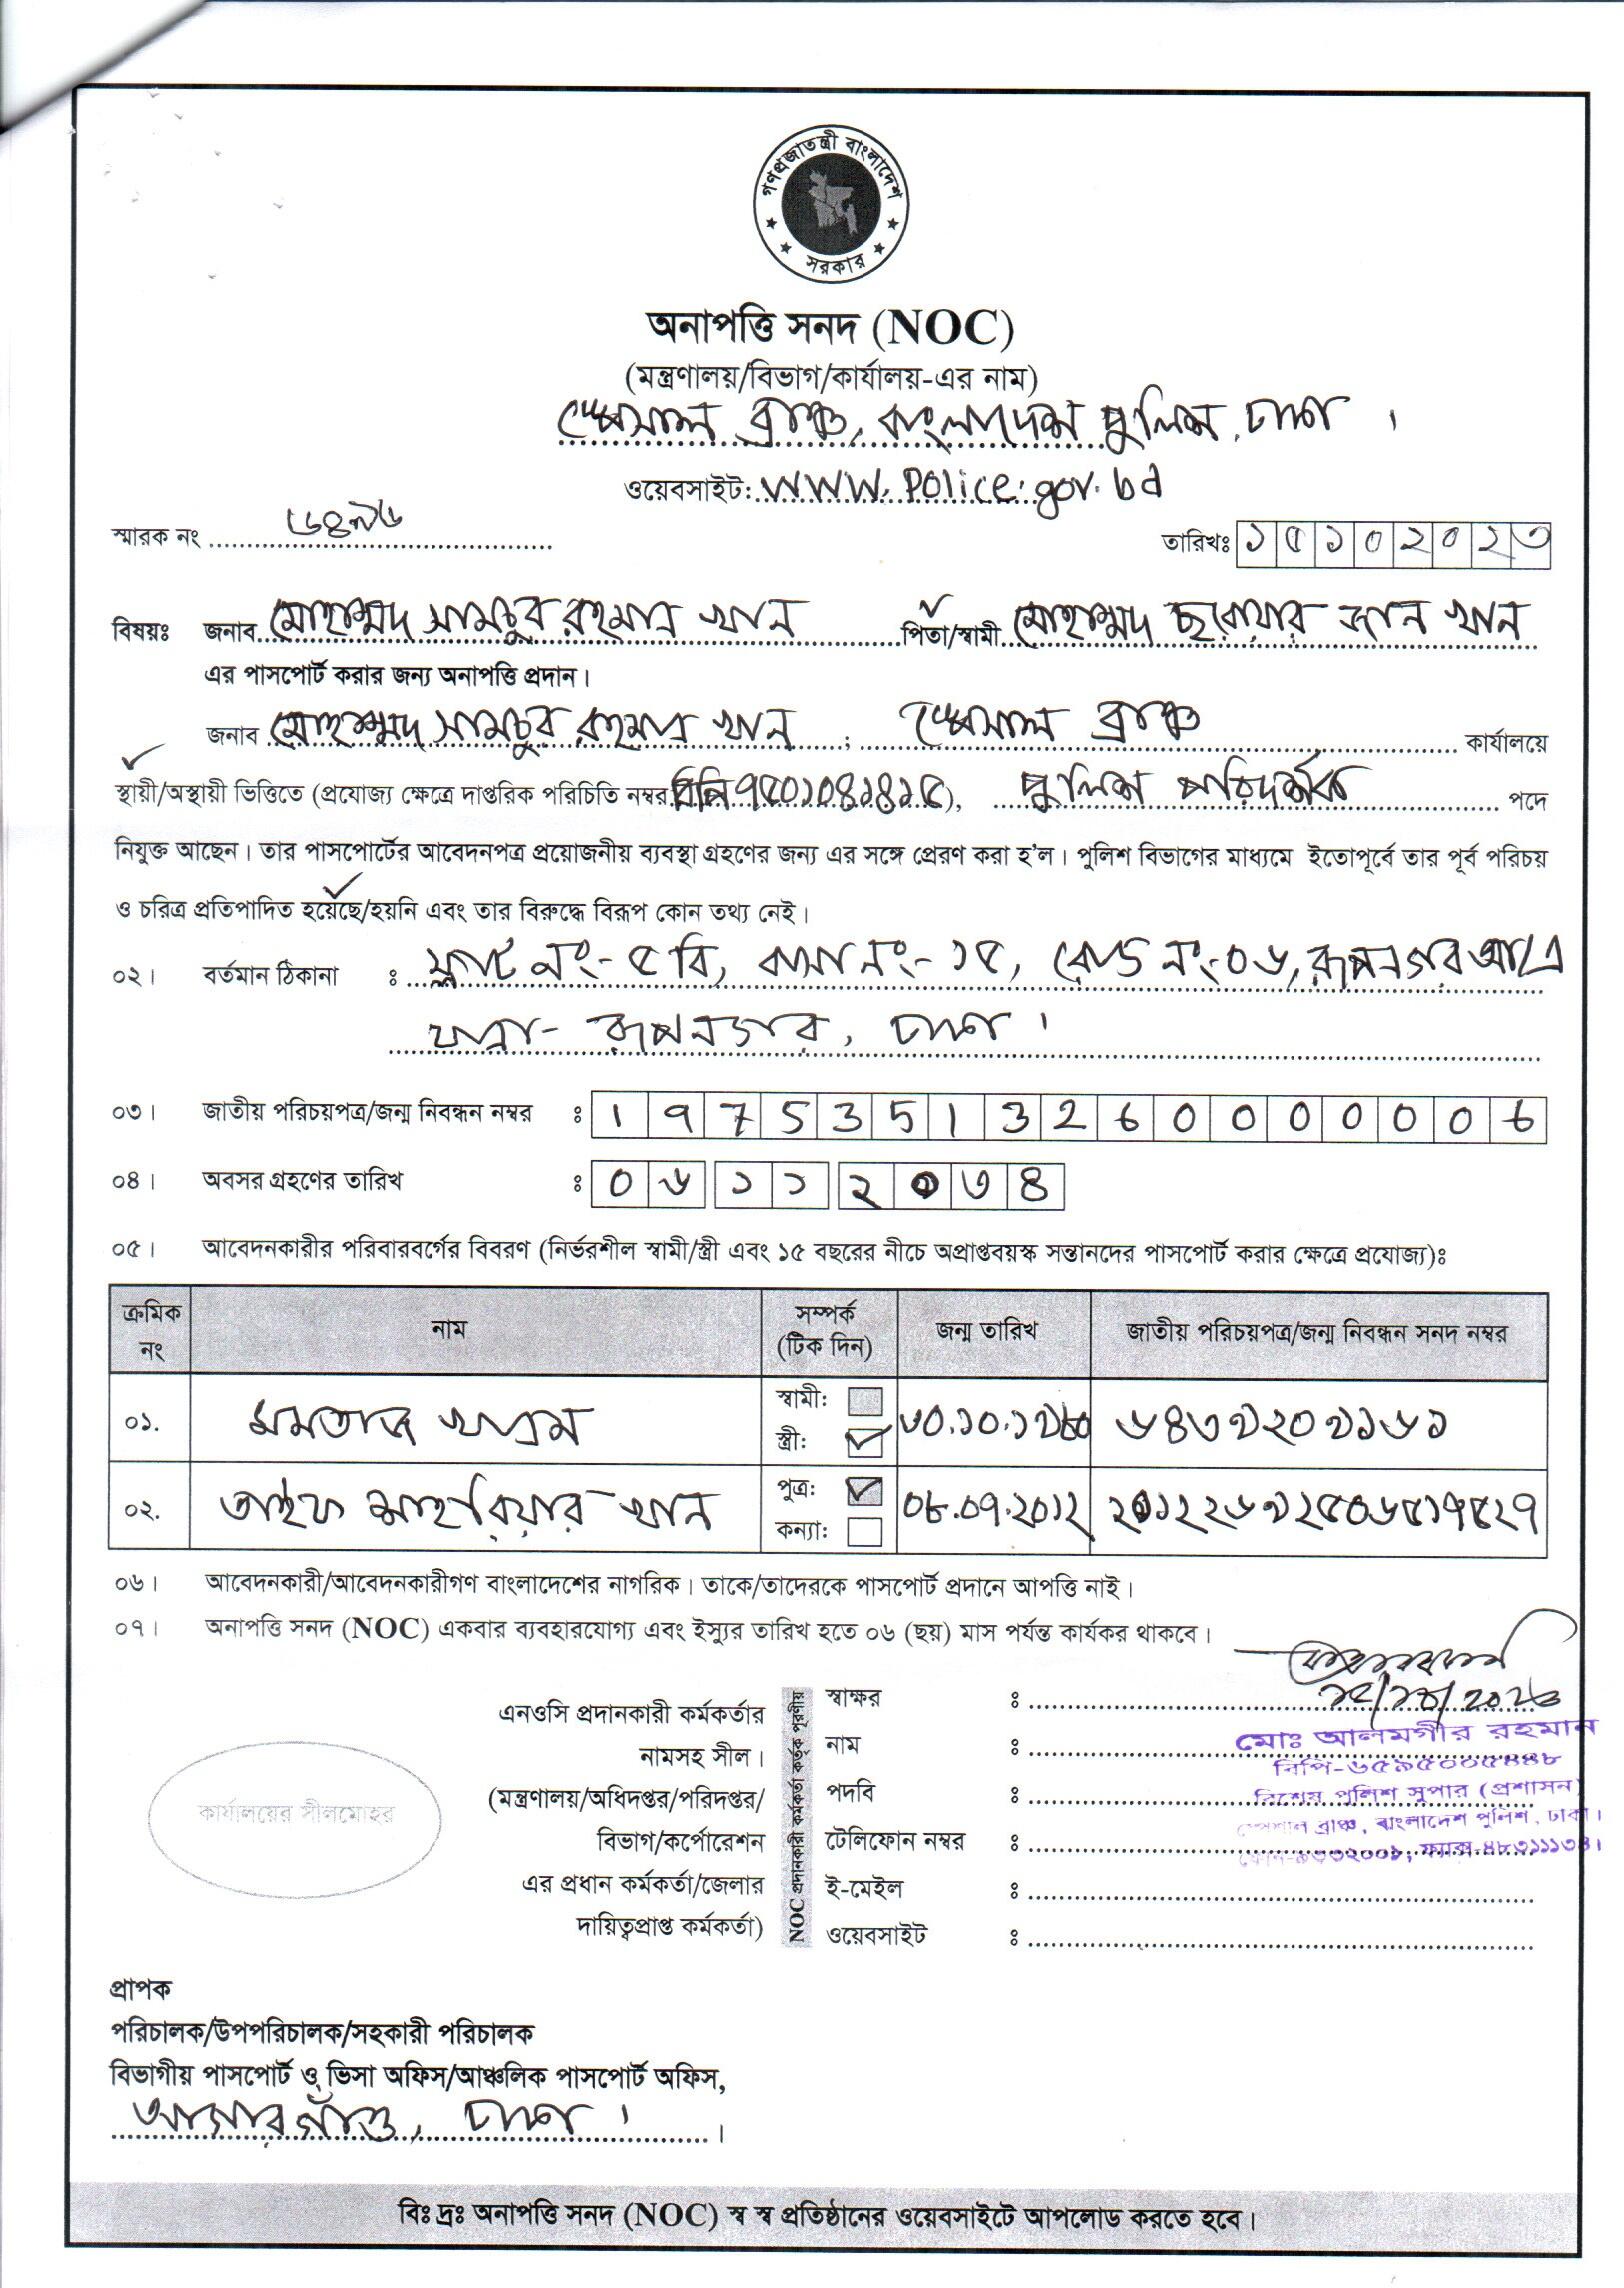 গণপ্রজাতন্ত্রী বাংলাদেশ
সরকার
অনাপত্তি সনদ (NOC)
(মন্ত্রণালয়/বিভাগ/কার্যালয়-এর নাম)
স্পেশাল ব্রাঞ্চ, বাংলাদেশ পুলিশ, ঢাকা।
ওয়েবসাইট: www.police.gov.bd
স্মারক নং ৬৪৯৬ তারিখঃ ১৫১০২০২৩
বিষয়ঃ জনাব মোহাম্মদ সামছুর রহমান খান পিতা/স্বামী মোহাম্মদ ছরোয়ার জান খান
এর পাসপোর্ট করার জন্য অনাপত্তি প্রদান।
জনাব মোহাম্মদ সামছুর রহমান খান, স্পেশাল ব্রাঞ্চ কার্যালয়ে
স্থায়ী/অস্থায়ী ভিত্তিতে (প্রযোজ্য ক্ষেত্রে দাপ্তরিক পরিচিতি নম্বর বিপি ৭৫০১০৪১৪১৫), পুলিশ পরিদর্শক পদে
নিযুক্ত আছেন। তার পাসপোর্টের আবেদনপত্র প্রয়োজনীয় ব্যবস্থা গ্রহণের জন্য এর সঙ্গে প্রেরণ করা হ'ল। পুলিশ বিভাগের মাধ্যমে ইতোপূর্বে তার পূর্ব পরিচয়
ও চরিত্র প্রতিপাদিত হয়েছে/হয়নি এবং তার বিরুদ্ধে বিরূপ কোন তথ্য নেই।
০২। বর্তমান ঠিকানা : ফ্ল্যাট নং- ৫বি, বাসা নং- ১৫, রোড নং-০৬, রূপনগর আ/এ
থানা- রূপনগর, ঢাকা।
০৩। জাতীয় পরিচয়পত্র/জন্ম নিবন্ধন নম্বর : 19753513260000006
০৪। অবসর গ্রহণের তারিখ : ০৬ ১১ ২০৩৪
০৫। আবেদনকারীর পরিবারবর্গের বিবরণ (নির্ভরশীল স্বামী/স্ত্রী এবং ১৫ বছরের নীচে অপ্রাপ্তবয়স্ক সন্তানদের পাসপোর্ট করার ক্ষেত্রে প্রযোজ্য)ঃ
ক্রমিক নং নাম সম্পর্ক (টিক দিন) জন্ম তারিখ জাতীয় পরিচয়পত্র/জন্ম নিবন্ধন সনদ নম্বর
০১. মমতাজ খানম স্বামী: স্ত্রী: ৩০.১০.১৯৮০ ৬৪৩৯২০৯১৬১
০২. তাইফ শাহরিয়ার খান পুত্র: কন্যা: ০৮.০৭.২০১২ ২০১২২৬৯২৫০৬৫১৭৫২৭
০৬। আবেদনকারী/আবেদনকারীগণ বাংলাদেশের নাগরিক। তাকে/তাদেরকে পাসপোর্ট প্রদানে আপত্তি নাই।
০৭। অনাপত্তি সনদ (NOC) একবার ব্যবহারযোগ্য এবং ইস্যুর তারিখ হতে ০৬ (ছয়) মাস পর্যন্ত কার্যকর থাকবে।
১৫/১০/২০২৩
এনওসি প্রদানকারী কর্মকর্তার
নামসহ সীল।
(মন্ত্রণালয়/অধিদপ্তর/পরিদপ্তর/
বিভাগ/কর্পোরেশন
এর প্রধান কর্মকর্তা/জেলার
দায়িত্বপ্রাপ্ত কর্মকর্তা)
কার্যালয়ের সীলমোহর
NOC প্রদানকারী কর্মকর্তা কর্তৃক পূরণীয়
স্বাক্ষর :
নাম : মোঃ আলমগীর রহমান
বিপি-৬৫৯৫০০৫৪৪৮
পদবি : বিশেষ পুলিশ সুপার (প্রশাসন)
স্পেশাল ব্রাঞ্চ, বাংলাদেশ পুলিশ, ঢাকা।
টেলিফোন নম্বর : ফোন-৯৩৩২০০১, ফ্যাক্স-৪৮৩১১১৩৪।
ই-মেইল :
ওয়েবসাইট :
প্রাপক
পরিচালক/উপপরিচালক/সহকারী পরিচালক
বিভাগীয় পাসপোর্ট ও ভিসা অফিস/আঞ্চলিক পাসপোর্ট অফিস,
আগারগাঁও, ঢাকা।
বিঃ দ্রঃ অনাপত্তি সনদ (NOC) স্ব স্ব প্রতিষ্ঠানের ওয়েবসাইটে আপলোড করতে হবে।